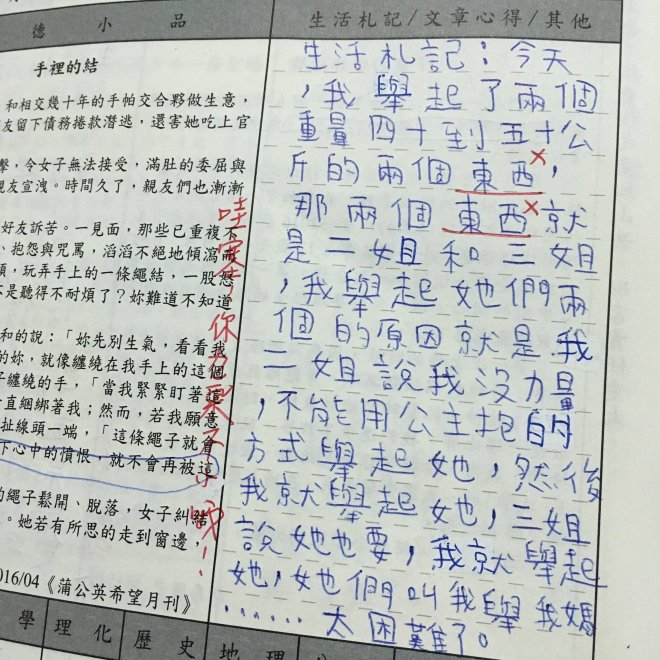 德小品
生活札記/文章心得/其他
手裡的結
和相交幾十年的手帕交合夥做生意，
友留下債務捲款潛逃，還害她吃上官
擊，令女子無法接受，滿肚的委屈與
親友宣洩。時間久了，親友們也漸漸
好友訴苦。一見面，那些已重複不
、抱怨與咒罵，滔滔不絕地傾瀉而
頭，玩弄手上的一條繩結，一股怒
不是聽得不耐煩了？妳難道不知道
和的說：「妳先別生氣，看看我
的妳，就像纏繞在我手上的這個
子纏繞的手，「當我緊緊盯著這
一直綑綁著我；然而，若我願意
扯線頭一端，「這條繩子就會
下心中的憤恨，就不會再被這
的繩子鬆開、脫落，女子糾結
。她若有所思的走到窗邊，
016/04《蒲公英希望月刊》
學 理化 歷史 地理 公
生活札記：今天
，我舉起了兩個
重量四十到五十公
斤的兩個東西，
那兩個東西就
是二姐和三姐
，我舉起她們兩
個的原因就是我
二姐說我沒力量
，不能用公主抱的
方式舉起她，然後
我就舉起她，三姐
說她也要，我就舉起
她，她們叫我舉我媽
……太困難了。
哇塞，你